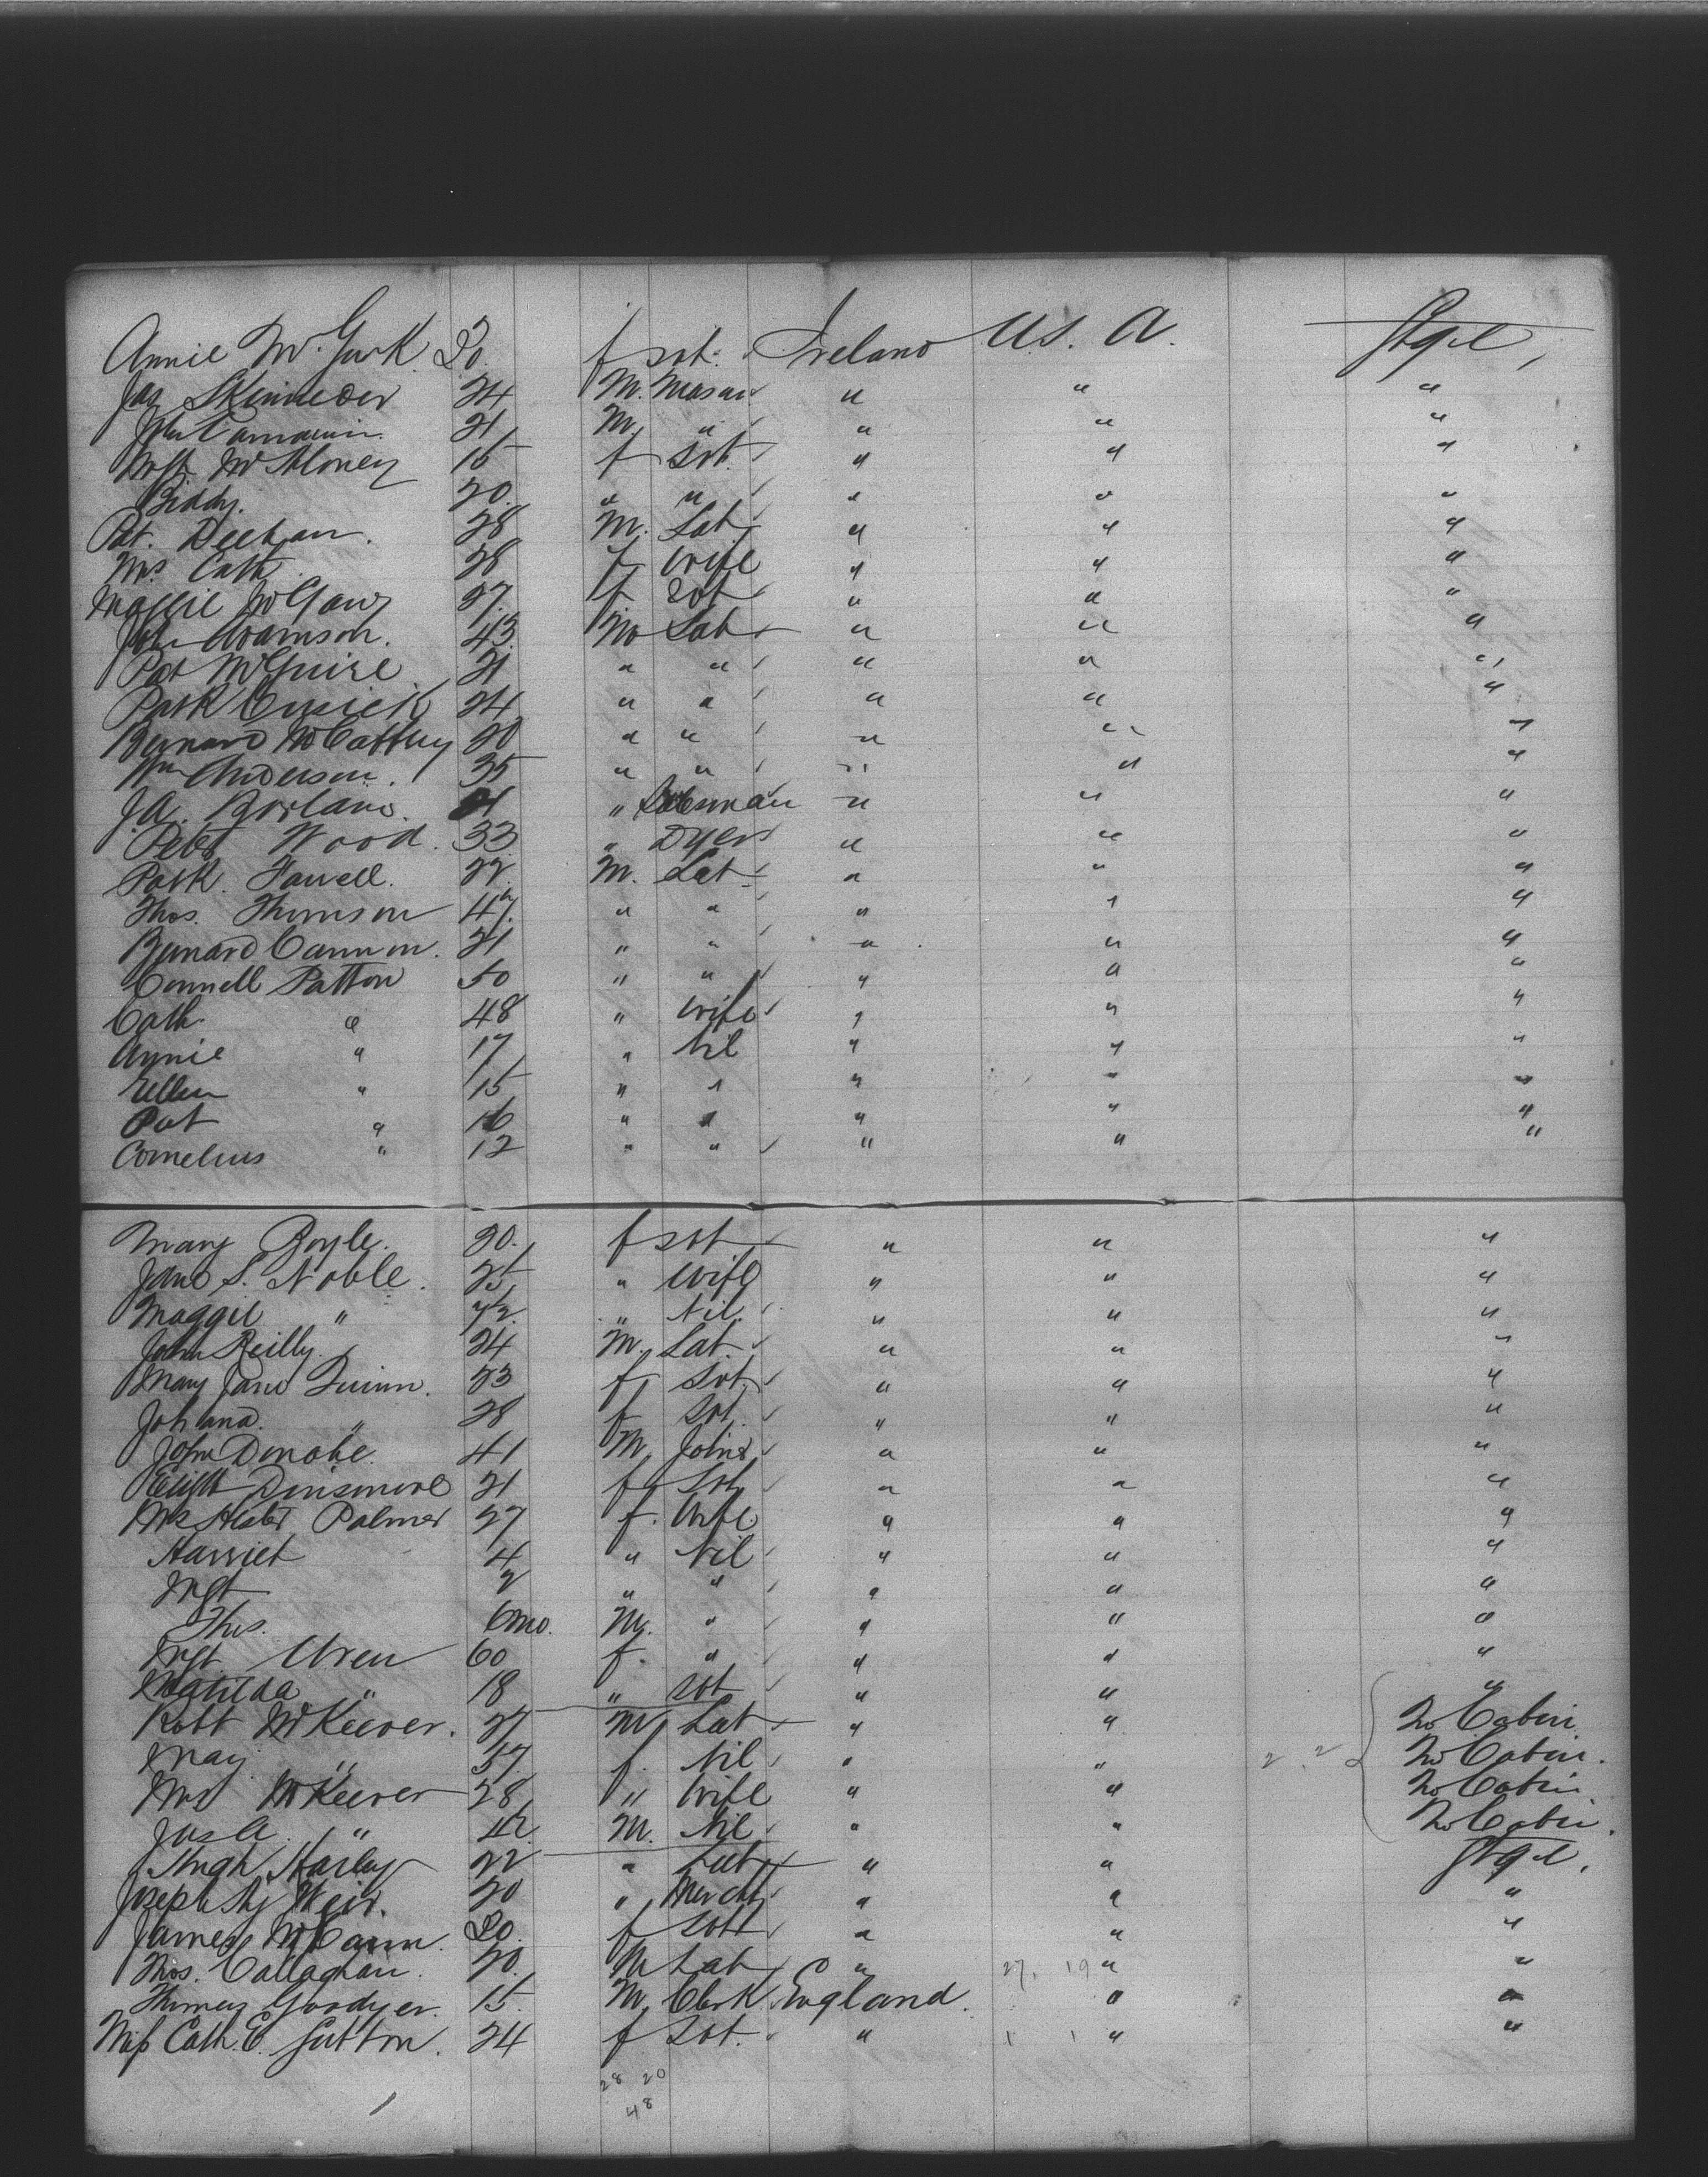 Annie McGurk 20 f svt. Ireland U.S.A. Stge,
Jas 24 M. Mason " " "
Jno 21 M. " " " "
Mgt 15 f svt. " " "
Biddy. 20. " " " " "
Pat. Deehan. 28 M. Lab. " " "
Mrs Cath 28 f wife " " "
27 f svt " " "
John Adamson. 43 M Lab " " "
Pat McGuire 21 " " " " "
Patk Cusick 24 " " " " "
Bernard McCaffrey 20 " " " " "
Wm Anderson. 35 " " " " "
J.A. Borland. 21 " Salesman " " "
Peter Wood. 33 " Dyer " " "
Patk. Farrell. 22 M. Lab " " "
Thos. Thomson 47. " " " " "
Bernard Cannon. 21 " " " " "
Connell Patton 50 " " " " "
Cath " 48 " wife " " "
Annie " 17 " Nil " " "
Ellen " 15 " " " " "
Pat " 16 " " " " "
Cornelius " 12 " " " " "
Mary Boyle. 20. f svt " " "
Jane S. Noble. 25 " wife " " "
Maggie " " Nil. " " "
John Reilly. 24 M. Lab. " " "
Mary Jane Quinn. 23 f svt. " " "
Johana. " 28 f svt. " " "
John Donohe. 41 M. Joiner " " "
Elizth Dinsmore 21 f svt " " "
Mrs Hester Palmer 27 f. wife " " "
Harriet 4 " Nil " " "
Mgt 2 " " " " "
Thos. 6mo. M. " " " "
Mgt Uren 60 f. " " " "
Matilda " 18 " svt " " "
Robt McKeever. 27 M Lab " " 2o Cabin
May " 57 f. Nil " " 2 2 2o Cabin.
Mrs McKeever 28 " wife " " 2o Cabin
Jas A. " M. Nil " " 2o Cabin.
Hugh Harley 22 " Lab " " Stge.
Joseph Weir. 20 " Mercht " " "
James McCann 20 f svt " " "
Thos. Callaghan. 20. M Lab " 27. 19 " "
Thomas Goodyer. 15. M. Clerk England. " "
Miss Cath. E. Sutton. 24 f svt. " 1 1 " "
28 20
48